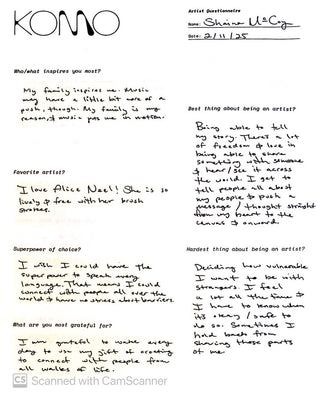 KOMO
Artist Questionnaire
Name: Shaina McCoy
Date: 2/11/25
Who/what inspires you most?
My family inspires me. Music
may have a little bit more of a
push, though. My family is my
reason, & music puts me in motion.
Favorite artist?
I love Alice Neel! She is so
lively & free with her brush
strokes.
Superpower of choice?
I wish I could have the
superpower to speak every
language. That means I could
connect with people all over the
world & have no stress about barriers.
What are you most grateful for?
I am grateful to wake every
day to use my gift of creating
to connect with people from
all walks of life.
Best thing about being an artist?
Being able to tell
my story. There's a lot
of freedom & love in
being able to share
something with someone
& hear/see it across
the world. I get to
tell people all about
my people & push a
message/thought straight
from my heart to the
canvas & onward.
Hardest thing about being an artist?
Deciding how vulnerable
I want to be with
strangers. I feel
a lot all the time &
I have to know when
it's okay/safe to
do so. Sometimes I
hold back from
sharing those parts
of me.
CS Scanned with CamScanner